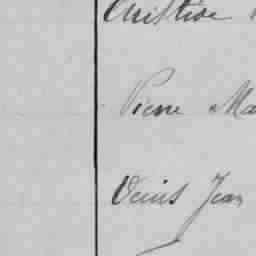 Aristide
Pierre Ma
Denis Jean